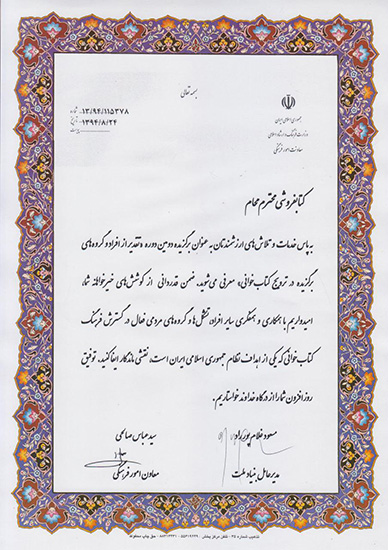 بسمه تعالی
جمهوری اسلامی ایران
وزارت فرهنگ و ارشاد اسلامی
معاونت امور فرهنگی
شماره ۱۳/۹۴/۱۱۵۳۷۸
تاریخ ۱۳۹۴/۸/۲۴
پیوست
کتابفروشی محترم محام
به پاس خدمات و تلاش‌های ارزشمندتان به عنوان برگزیده دومین دوره «تقدیر از افراد و گروه‌های
برگزیده در ترویج کتاب‌خوانی» معرفی می‌شوید. ضمن قدردانی از کوشش‌های خیرخواهانه شما،
امیدواریم با همکاری و همفکری سایر افراد، تشکل‌ها و گروه‌های مردمی فعال در گسترش فرهنگ
کتاب‌خوانی که یکی از اهداف نظام جمهوری اسلامی ایران است، نقشی ماندگار ایفا کنید. توفیق
روزافزون شما را از درگاه خداوند خواستاریم.
سید عباس صالحی
معاون امور فرهنگی
مسعود غلام‌پور راد
مدیرعامل بنیاد ملت